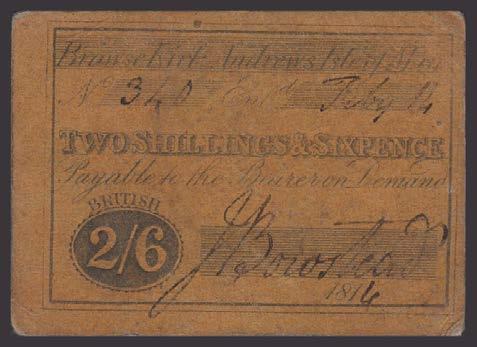 Kirk Andrews Isle of Man
No 340 Entd Feby 4
TWO SHILLINGS & SIXPENCE
Payable to the Bearer on Demand
BRITISH
2/6
J Bowstead
1816